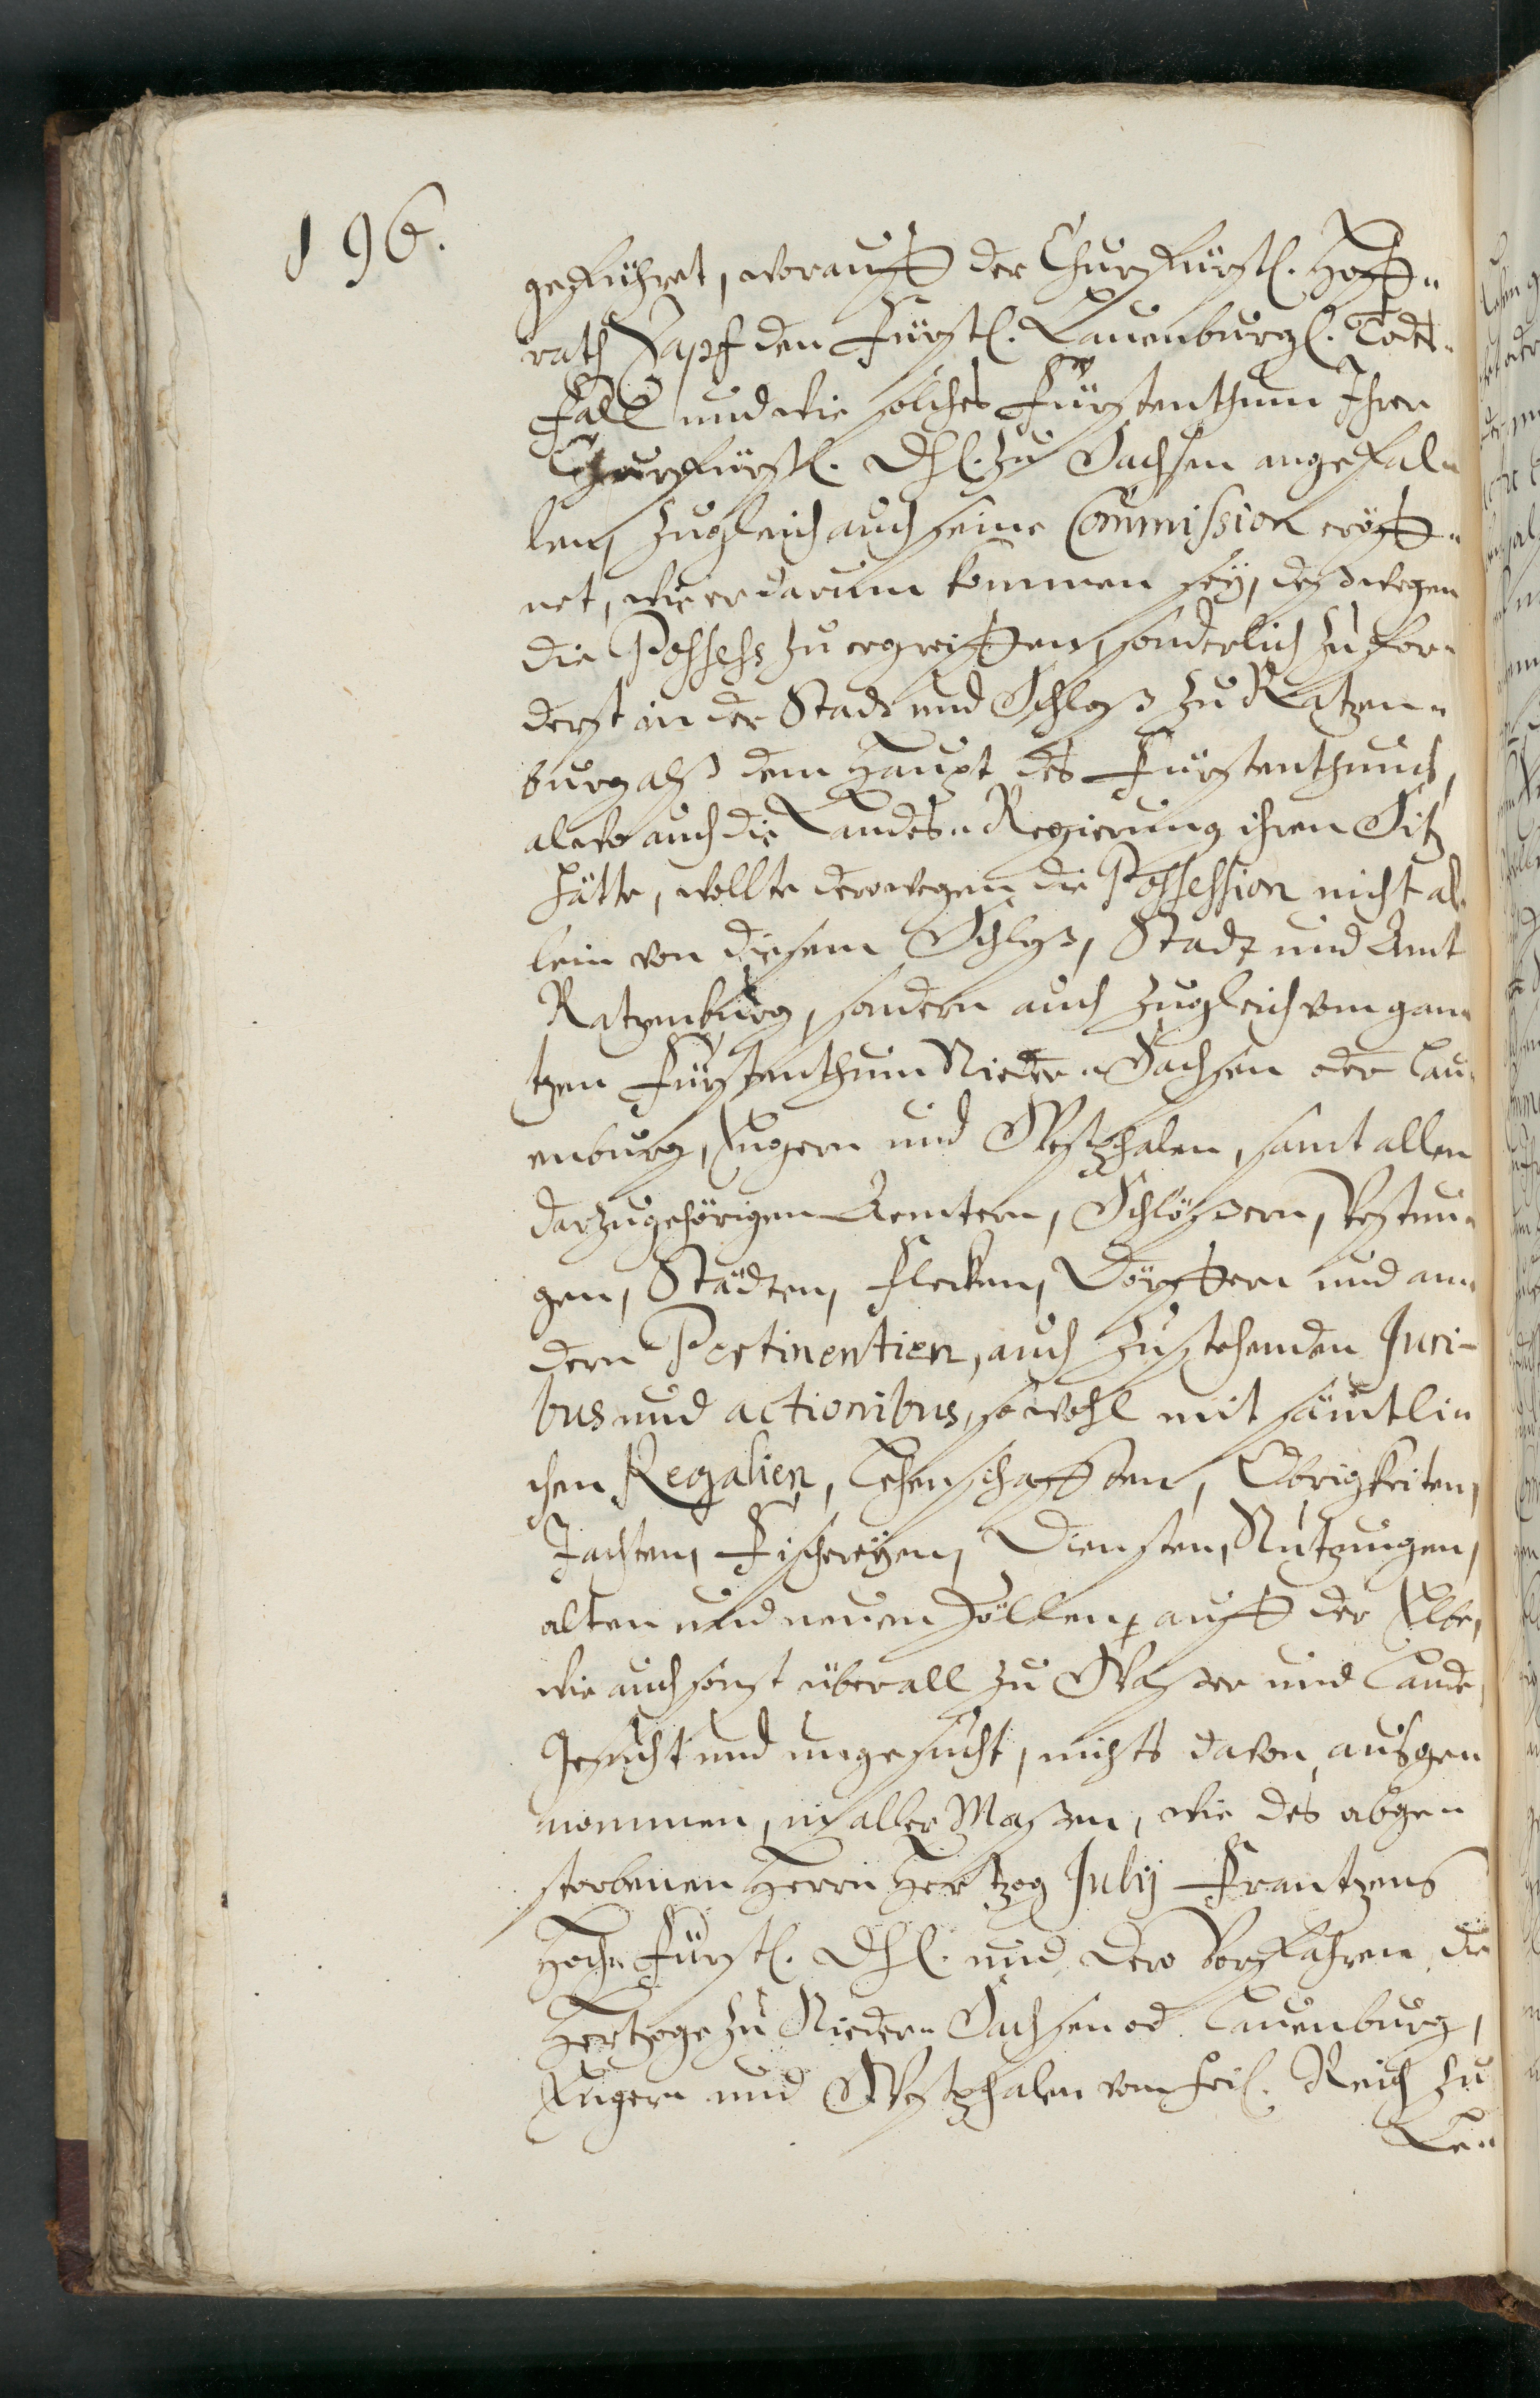 196.
geführet, worauff der Churfürstl. Hoff-
rath Zapf den Fürstl. Lauenburgl. Todt-
fall und wie solches Fürstenthum Ihrer
Churfürstl. Dhl. zu Sachsen angefal-
len, zugleich auch seine Commission eröff-
net, wie er darum kommen sey, deßwegen
die Possess zu ergreiffen, sonderlich zu for-
derst in der Stadt und Schloß zu Ratzen-
burg alß dem Haupt des Fürstenthums,
alwo auch die Landes-Regierung ihren Sitz
hätte, wollte derowegen die Possession nicht al-
lein von diesem Schloß, Stadt und Amt
Ratzenburg, sondern auch zugleich vom gan-
tzen Fürstenthum Nieder-Sachsen oder Lau-
enburg, Engern und Westphalen, samt allen
darzugehörigen Aemtern, Schlößern, Vestun-
gen, Städten, Flecken, Dörffern und an-
dern Pertinentien, auch zustehenden Juri-
bus und actionibus, sowohl mit sämtli-
chen Regalien, Lehenschafften, Obrigkeiten,
Jachten, Fischereyen, Diensten, Nutzungen,
alten und neuen Zöllen, auff der Elbe,
wie auch sonst überall zu Waßer und Lande,
Gesucht und ungesucht, nichts davon ausge-
nommen, in aller Maßen, wie des abge-
storbenen Herrn Hertzog Julij Frantzens
Hoch-Fürstl. Dhl. und dero Vorfahren, die
Hertzoge zu Nieder-Sachsen od. Lauenburg,
Engern und Westphalen vom heil. Reich zu
Le-